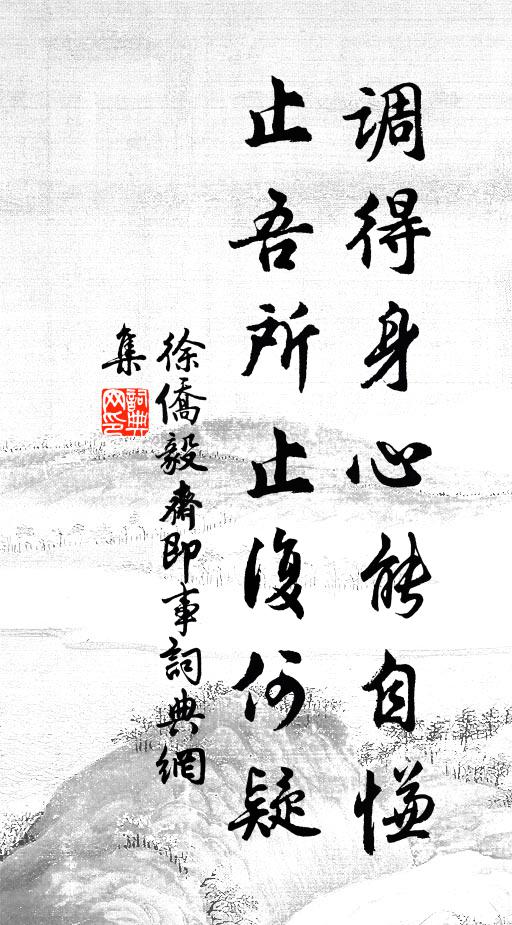 调得身心能自慊
止吾所止復何疑
徐僑毅齋即事詞典網
集
詞典
网印